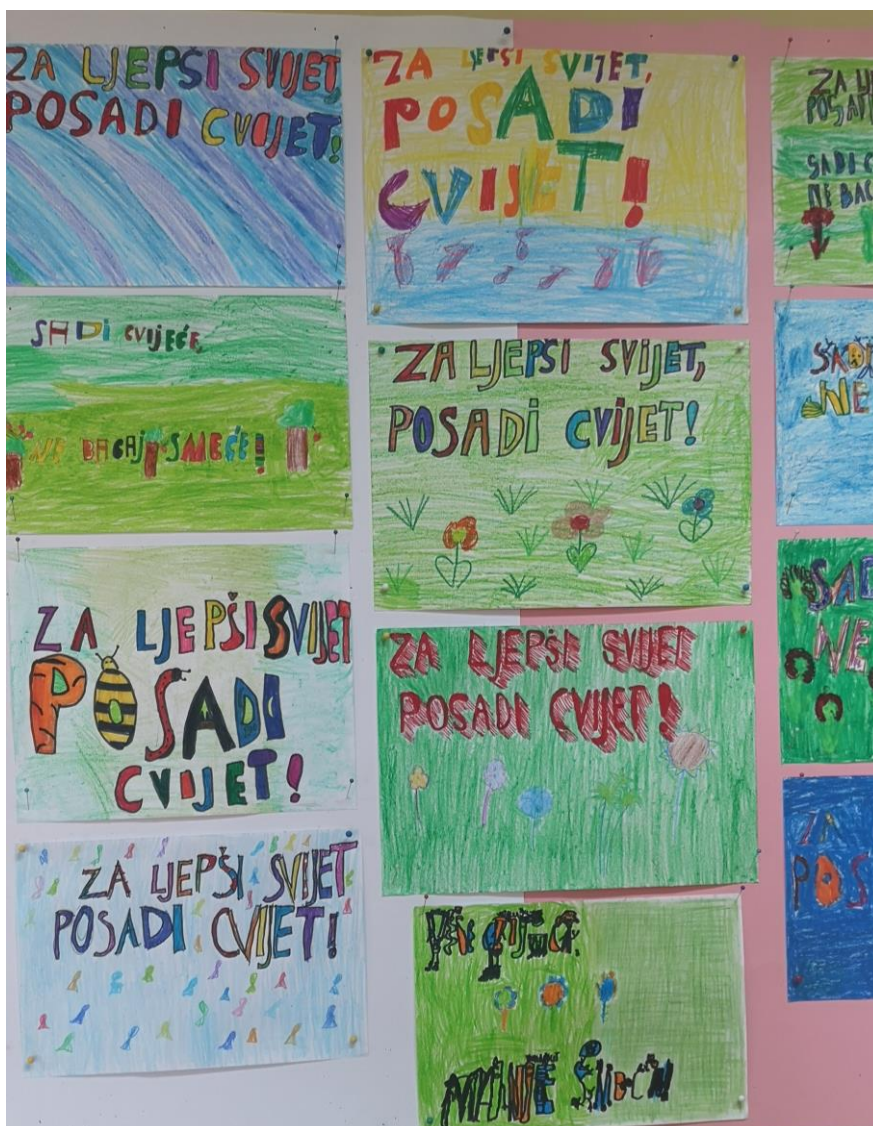 ZA LJEPŠI SVIJET,
POSADI CVIJET!
SADI CVIJEĆE,
NE BACAJ SMEĆE!
ZA LJEPŠI SVIJET
POSADI
CVIJET!
ZA LJEPŠI SVIJET
POSADI CVIJET!
ZA LJEPŠI SVIJET,
POSADI
CVIJET!
ZA LJEPŠI SVIJET,
POSADI CVIJET!
ZA LJEPŠI SVIJET
POSADI CVIJET!
MANJE
ZA
SADI
NE BAC
NE
SAD
NE
ZA
POS